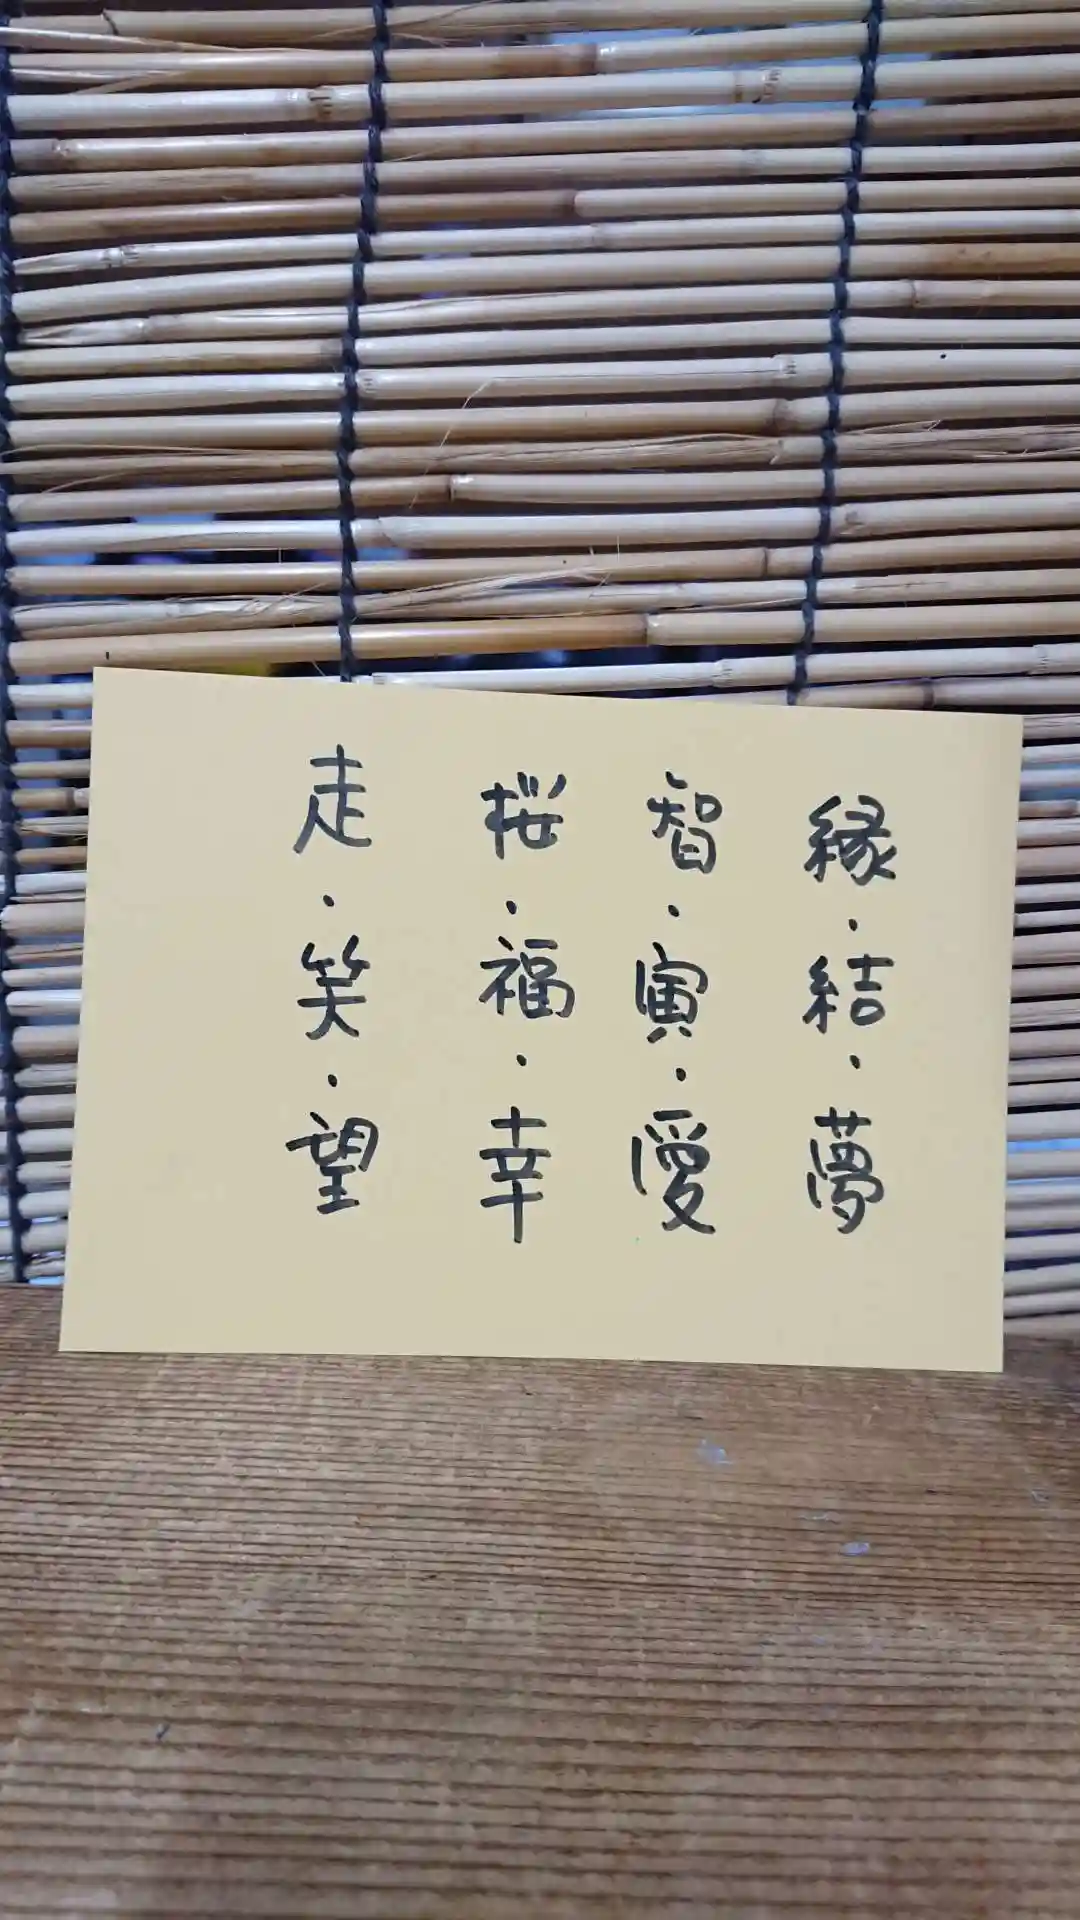 縁・結・夢
智・寅・愛
桜・福・幸
走・笑・望